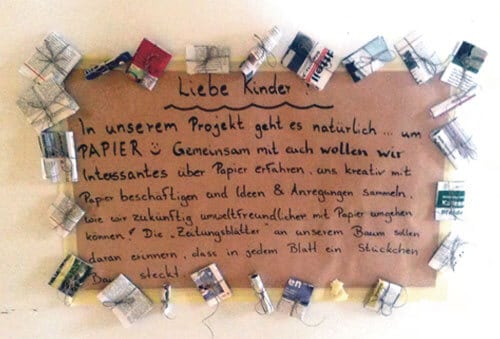 Liebe Kinder!
In unserem Projekt geht es natürlich ... um
PAPIER Gemeinsam mit euch wollen wir
Intessantes über Papier erfahren, uns kreativ mit
Papier beschäftigen und Ideen & Anregungen sammeln,
wie wir zukünftig umweltfreundlicher mit Papier umgehen
können! Die „Zeitungsblätter" an unserem Baum sollen
daran erinnern, dass in jedem Blatt ein Stückchen
steckt.